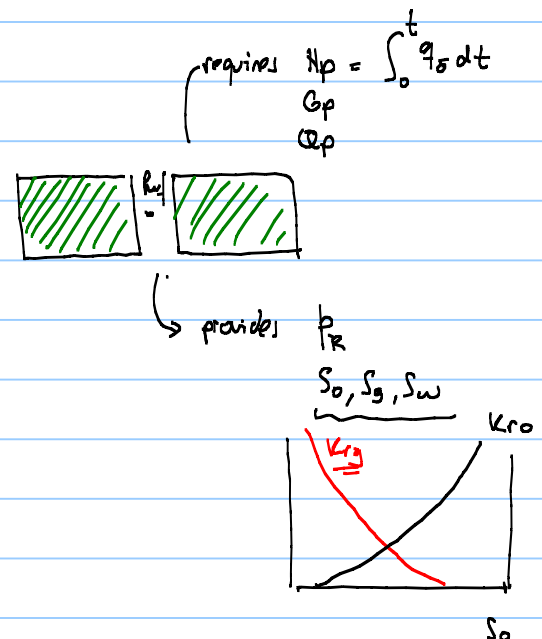 requires Np = ∫₀ᵗ qō dt
Gp
Qp
=
provides pR
So, Sg, Sw
Krg
Kro
So